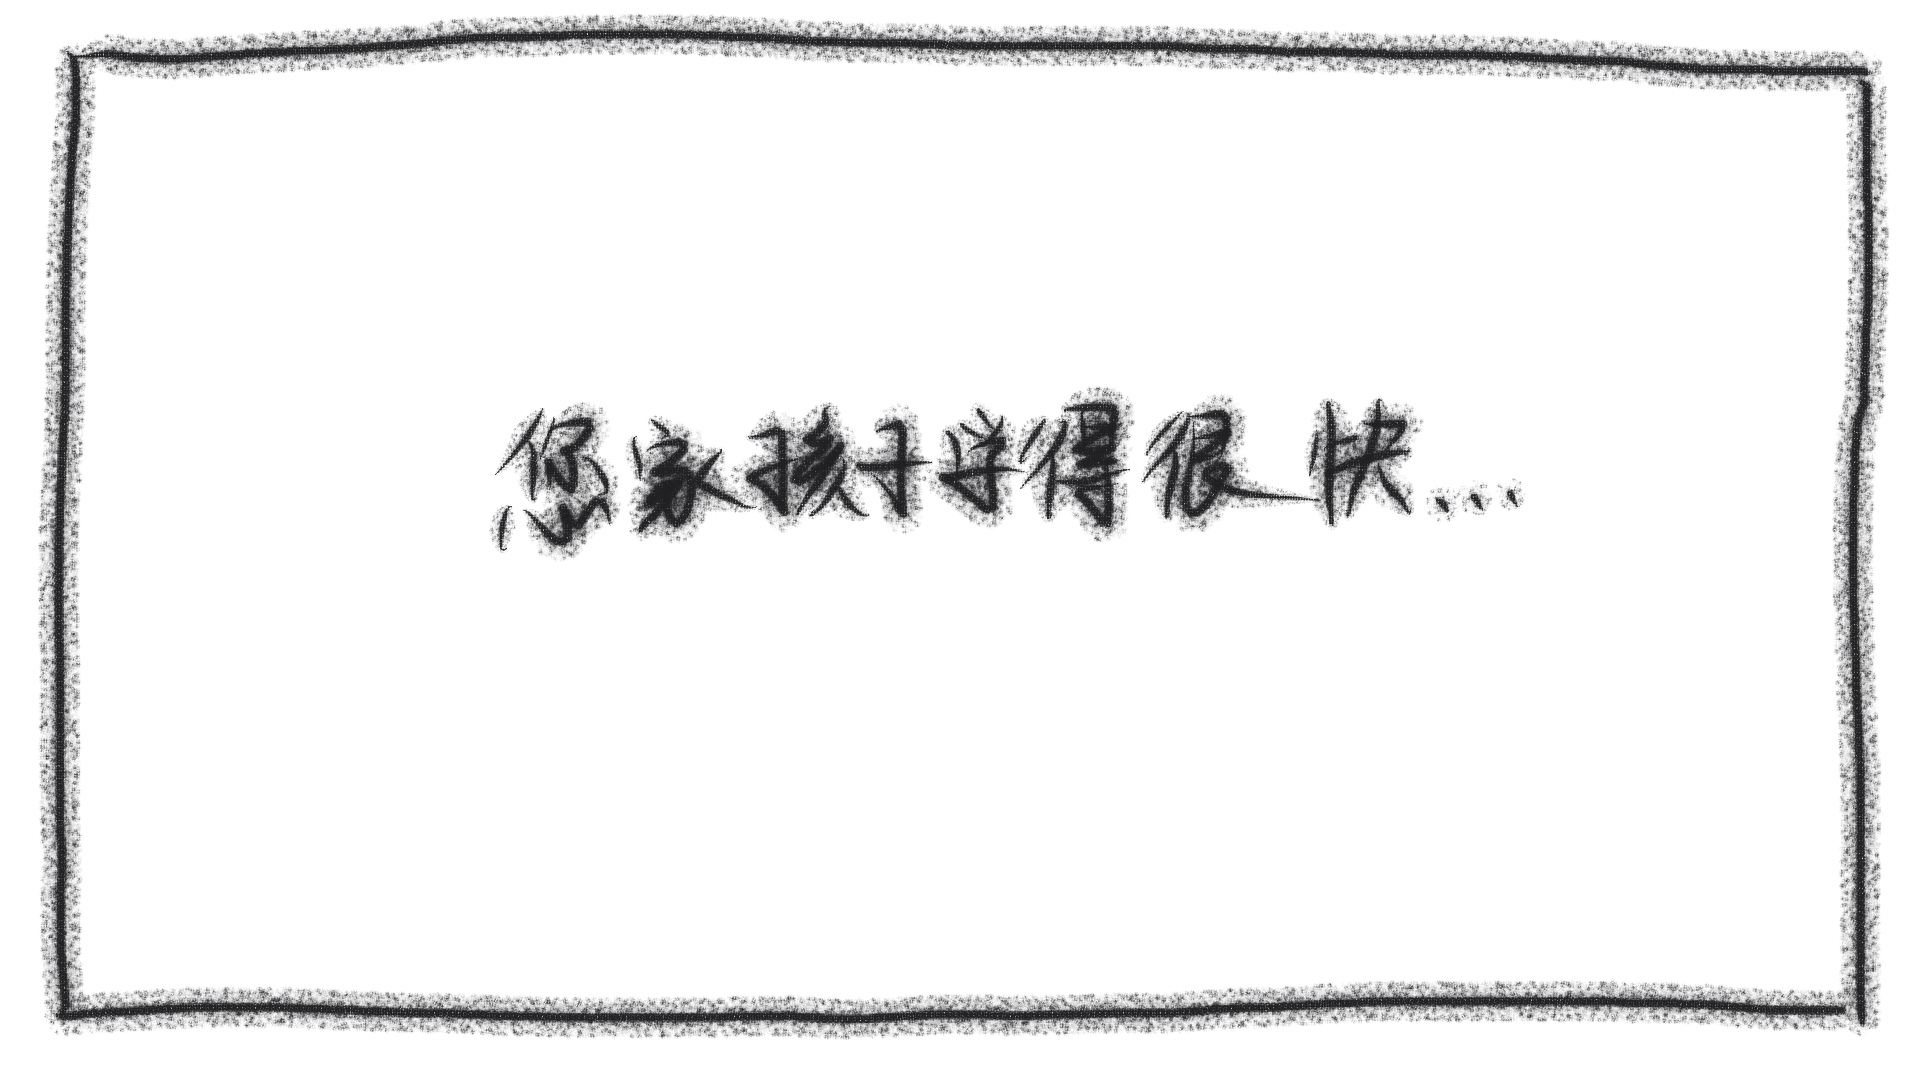 您家孩子学得很快...